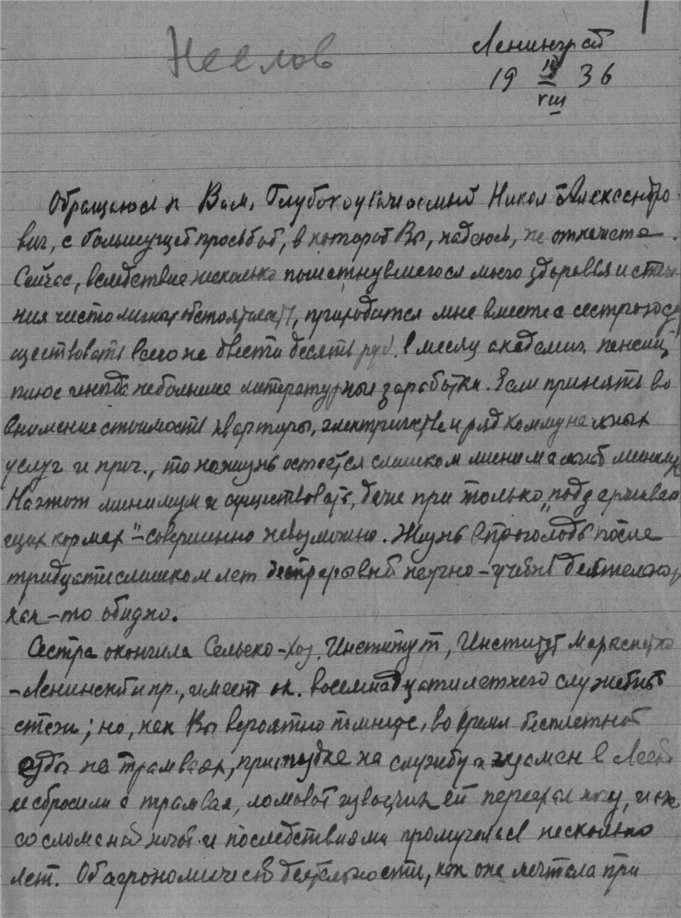 1
Ленинград
19 VIII 36
Обращаюсь к Вам, Глубокоуважаемый Николай Александро-
вич, с большущей просьбой, в которой Вы, надеюсь, не откажете.
Сейчас, вследствие несколько пошатнувшегося моего здоровья и стече-
ния чисто личных обстоятельств, приходится мне вместе с сестрою су-
ществовать всего на двести десять руб. в месяц академич. пенсии,
плюс иногда небольшие литературные заработки. Если принять во
внимание стоимость квартиры, электричества и ряд коммунальных
услуг и проч., то на жизнь остается слишком минимальный минимум.
На этот минимум и существовать, даже при только "поддерживаю-
щих кормах" - совершенно невозможно. Жизнь впроголодь после
тридцати слишком лет беспрерывной научно-учебной деятельности,
как-то обидно.
Сестра окончила Сельско-Хоз. Институт, Институт Марксистко
-Ленинский и пр., имеет ок. восемнадцатилетнего служебный
стаж; но, как Вы вероятно помните, во время бесплатной
езды на трамваях, при поездке на службу экзамен в
ее сбросили с трамвая, ломовой извозчик ей переехал ногу, и
со сломаной ногой и последствиями промучилась несколько
лет. Об агрономической деятельности, как она мечтала при